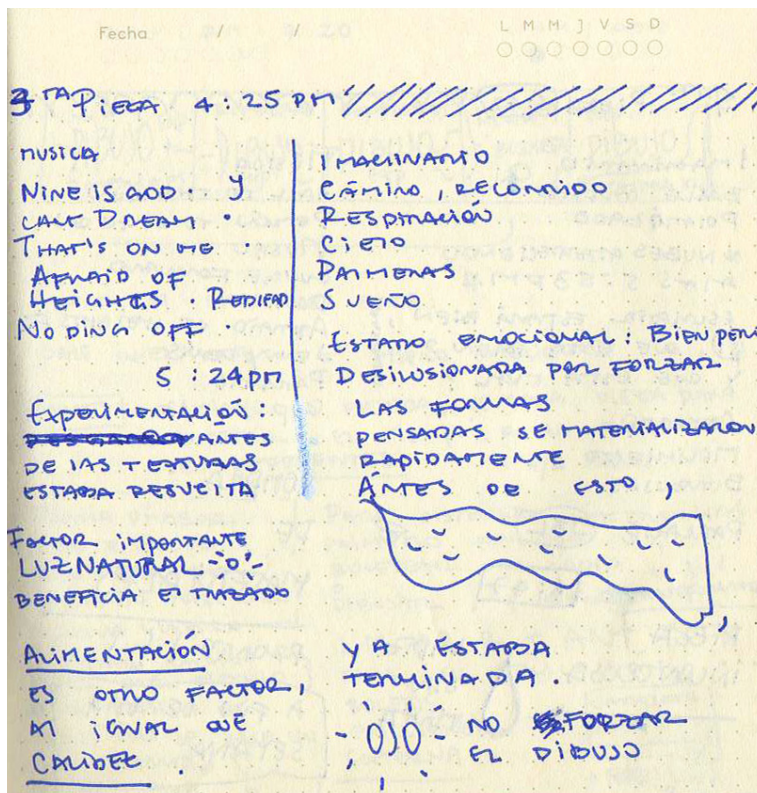 Fecha / /
L M M J V S D
3TA PIEZA 4:25 PM
MUSICA
NINE IS GOD y
CAVE DREAM ·
THAT'S ON ME ·
AFRAID OF
HEIGHTS ·
NO DING OFF
5:24pm
EXPERIMENTACIÓN:
ANTES
DE LAS TEXTURAS
ESTABA RESUELTA
FACTOR IMPORTANTE
LUZ NATURAL
BENEFICIA EL TRAZADO
ALIMENTACIÓN
ES OTRO FACTOR,
AL IGUAL QUE
CALIDEZ.
IMAGINARIO
CAMINO, RECORRIDO
RESPIRACIÓN
CIELO
PALMERAS
SUEÑO
ESTADO EMOCIONAL: BIEN PERO
DESILUSIONADA POR FORZAR
LAS FORMAS
PENSADAS SE MATERIALIZARON
RAPIDAMENTE
ANTES DE ESTO,
YA ESTABA
TERMINADA.
OJO NO FORZAR
EL DIBUJO